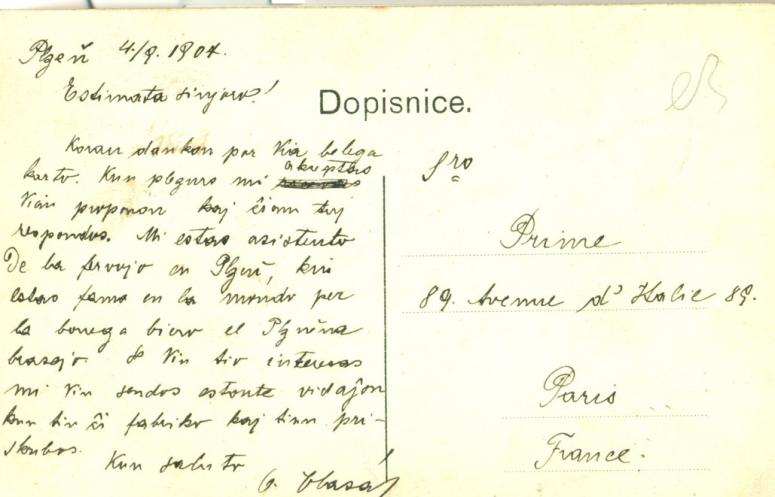 Plzeň 4/9. 1904.
Estimata sinjoro!
Dopisnice.
Koran dankon por Via belega
karto. Kun plezuro mi akceptas
Vian proponon kaj ĉiam tuj
respondos. Mi estas asistento
De la fervojo en Plzeň, kiu
estas fama en la mondo per
la bonega biero el
brasejo. Vin tio interesas
mi Vin sendos estonte vidaĵon
kun tiu ĉi fabriko kaj pri-
skribos.
Kun saluto
Sro
Prime
89. Avenue d'Italie 89.
Paris
France.